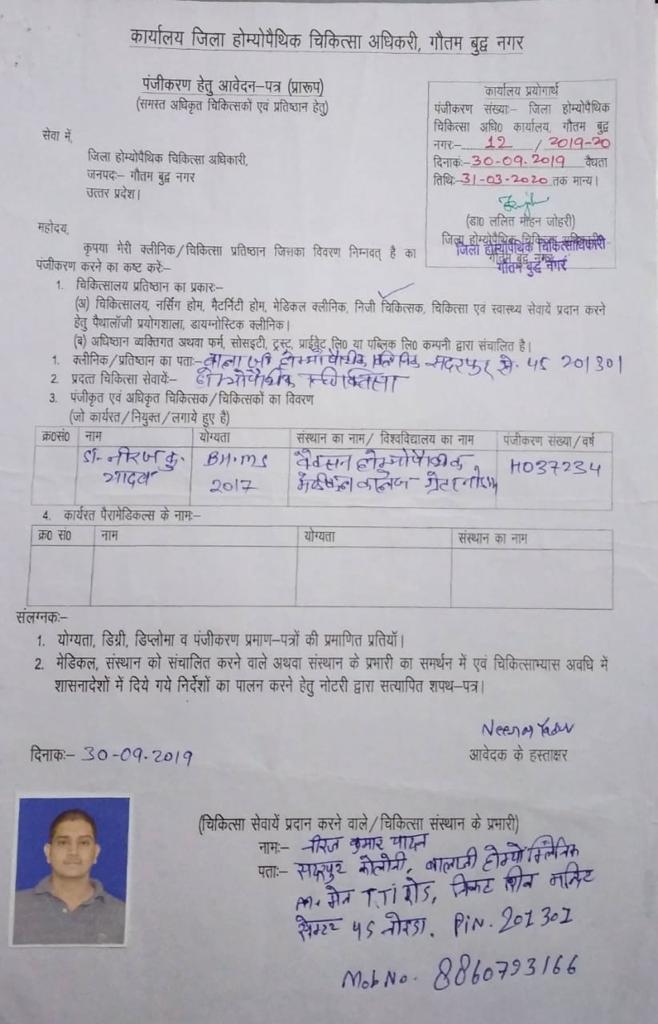 कार्यालय जिला होम्योपैथिक चिकित्सा अधिकरी, गौतम बुद्व नगर
पंजीकरण हेतु आवेदन–पत्र (प्रारूप)
(समस्त अधिकृत चिकित्सकों एवं प्रतिष्ठान हेतु)
कार्यालय प्रयोगार्थ
पंजीकरण संख्याः– जिला होम्योपैथिक
चिकित्सा अधि0 कार्यालय, गौतम बुद्व
नगरः– 12 / 2019-20
दिनाकः– 30-09.2019 वैधता
तिथिः– 31-03-2020 तक मान्य।
(डा0 ललित मोहन जोहरी)
जिला होम्योपैथिक चिकित्सा अधिकारी
गौतम बुद्व नगर
जिला होम्योपैथिक चिकित्साधिकारी
गौतम बुद्व नगर
सेवा में,
जिला होम्योपैथिक चिकित्सा अधिकारी,
जनपदः– गौतम बुद्व नगर
उत्तर प्रदेश।
महोदय,
कृपया मेरी क्लीनिक/चिकित्सा प्रतिष्ठान जिसका विवरण निम्नवत् है का
पंजीकरण करने का कष्ट करेंः–
1. चिकित्सालय प्रतिष्ठान का प्रकारः–
(अ) चिकित्सालय, नर्सिंग होम, मैटर्निटी होम, मेडिकल क्लीनिक, निजी चिकित्सक, चिकित्सा एवं स्वास्थ्य सेवायें प्रदान करने
हेतु पैथालॉजी प्रयोगशाला, डायग्नोस्टिक क्लीनिक।
(ब) अधिष्ठान व्यक्तिगत अथवा फर्म, सोसइटी, ट्रस्ट, प्राईवेट लि0 या पब्लिक लि0 कम्पनी द्वारा संचालित है।
1. क्लीनिक/प्रतिष्ठान का पताः– बालाजी होम्योपैथिक क्लिनिक सदरपुर से. 45 201301
2. प्रदत्त चिकित्सा सेवायेंः– होम्योपैथिक चिकित्सा
3. पंजीकृत एवं अधिकृत चिकित्सक/चिकित्सकों का विवरण
(जो कार्यरत/नियुक्त/लगाये हुए है)
क्र0सं0 नाम योग्यता संस्थान का नाम/ विश्वविद्यालय का नाम पंजीकरण संख्या/वर्ष
डा. नीरज कु. BH.MS वैक्सन होम्योपैथिक H037234
यादव 2017 मेडीकल कालेज ग्रेटर नोएडा
4. कार्यरत पैरामेडिकल्स के नामः–
क्र0 सं0 नाम योग्यता संस्थान का नाम
संलग्नकः–
1. योग्यता, डिग्री, डिप्लोमा व पंजीकरण प्रमाण–पत्रों की प्रमाणित प्रतियॉ।
2. मेडिकल, संस्थान को संचालित करने वाले अथवा संस्थान के प्रभारी का समर्थन में एवं चिकित्साभ्यास अवधि में
शासनादेशों में दिये गये निर्देशों का पालन करने हेतु नोटरी द्वारा सत्यापित शपथ–पत्र।
Neeraj Yadav
दिनाकः– 30-09.2019 आवेदक के हस्ताक्षर
(चिकित्सा सेवायें प्रदान करने वाले/चिकित्सा संस्थान के प्रभारी)
नामः– नीरज कुमार यादव
पताः– सदरपुर कोलोनी, बालाजी होम्यो क्लिनिक
मेन TTI रोड, निकट
सेक्टर 45 नोएडा. PiN. 201301
Mob No. 8860793166